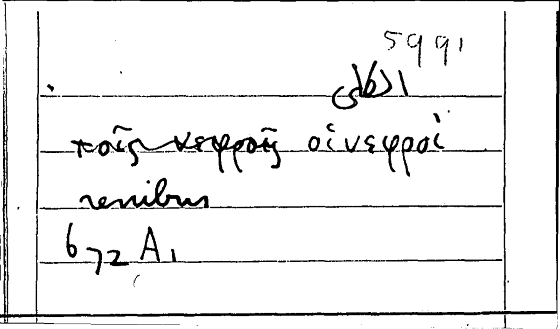 5991
τοῖς νεφροῖς οἱ νεφροί
renibus
672 A1